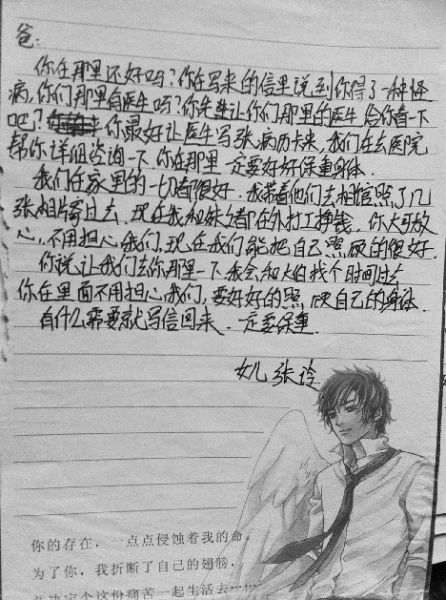 爸:
你在那里还好吗?你在写来的信里说到你得了一种怪
病,你们那里有医生吗?你先让你们那里的医生给你看一下
吧?你最好让医生写张病历卡来,我们在去医院
帮你详细咨询一下,你在那里一定要好好保重身体.
我们在家里的一切都很好.我带着他们去相馆照了几
张相片寄过去,现在我和妹妹都在外打工挣钱,你大可放
心,不用担心我们,现在我们能把自己照顾的很好.
你说让我们去你那里一下,我会和大伯找个时间过去
你在里面不用担心我们,要好好的照顾自己的身体.
有什么需要就写信回来.一定要保重.
女儿 张玲
你的存在,一点点侵蚀着我的命。
为了你,我折断了自己的翅膀,
这份痛苦一起生活去……